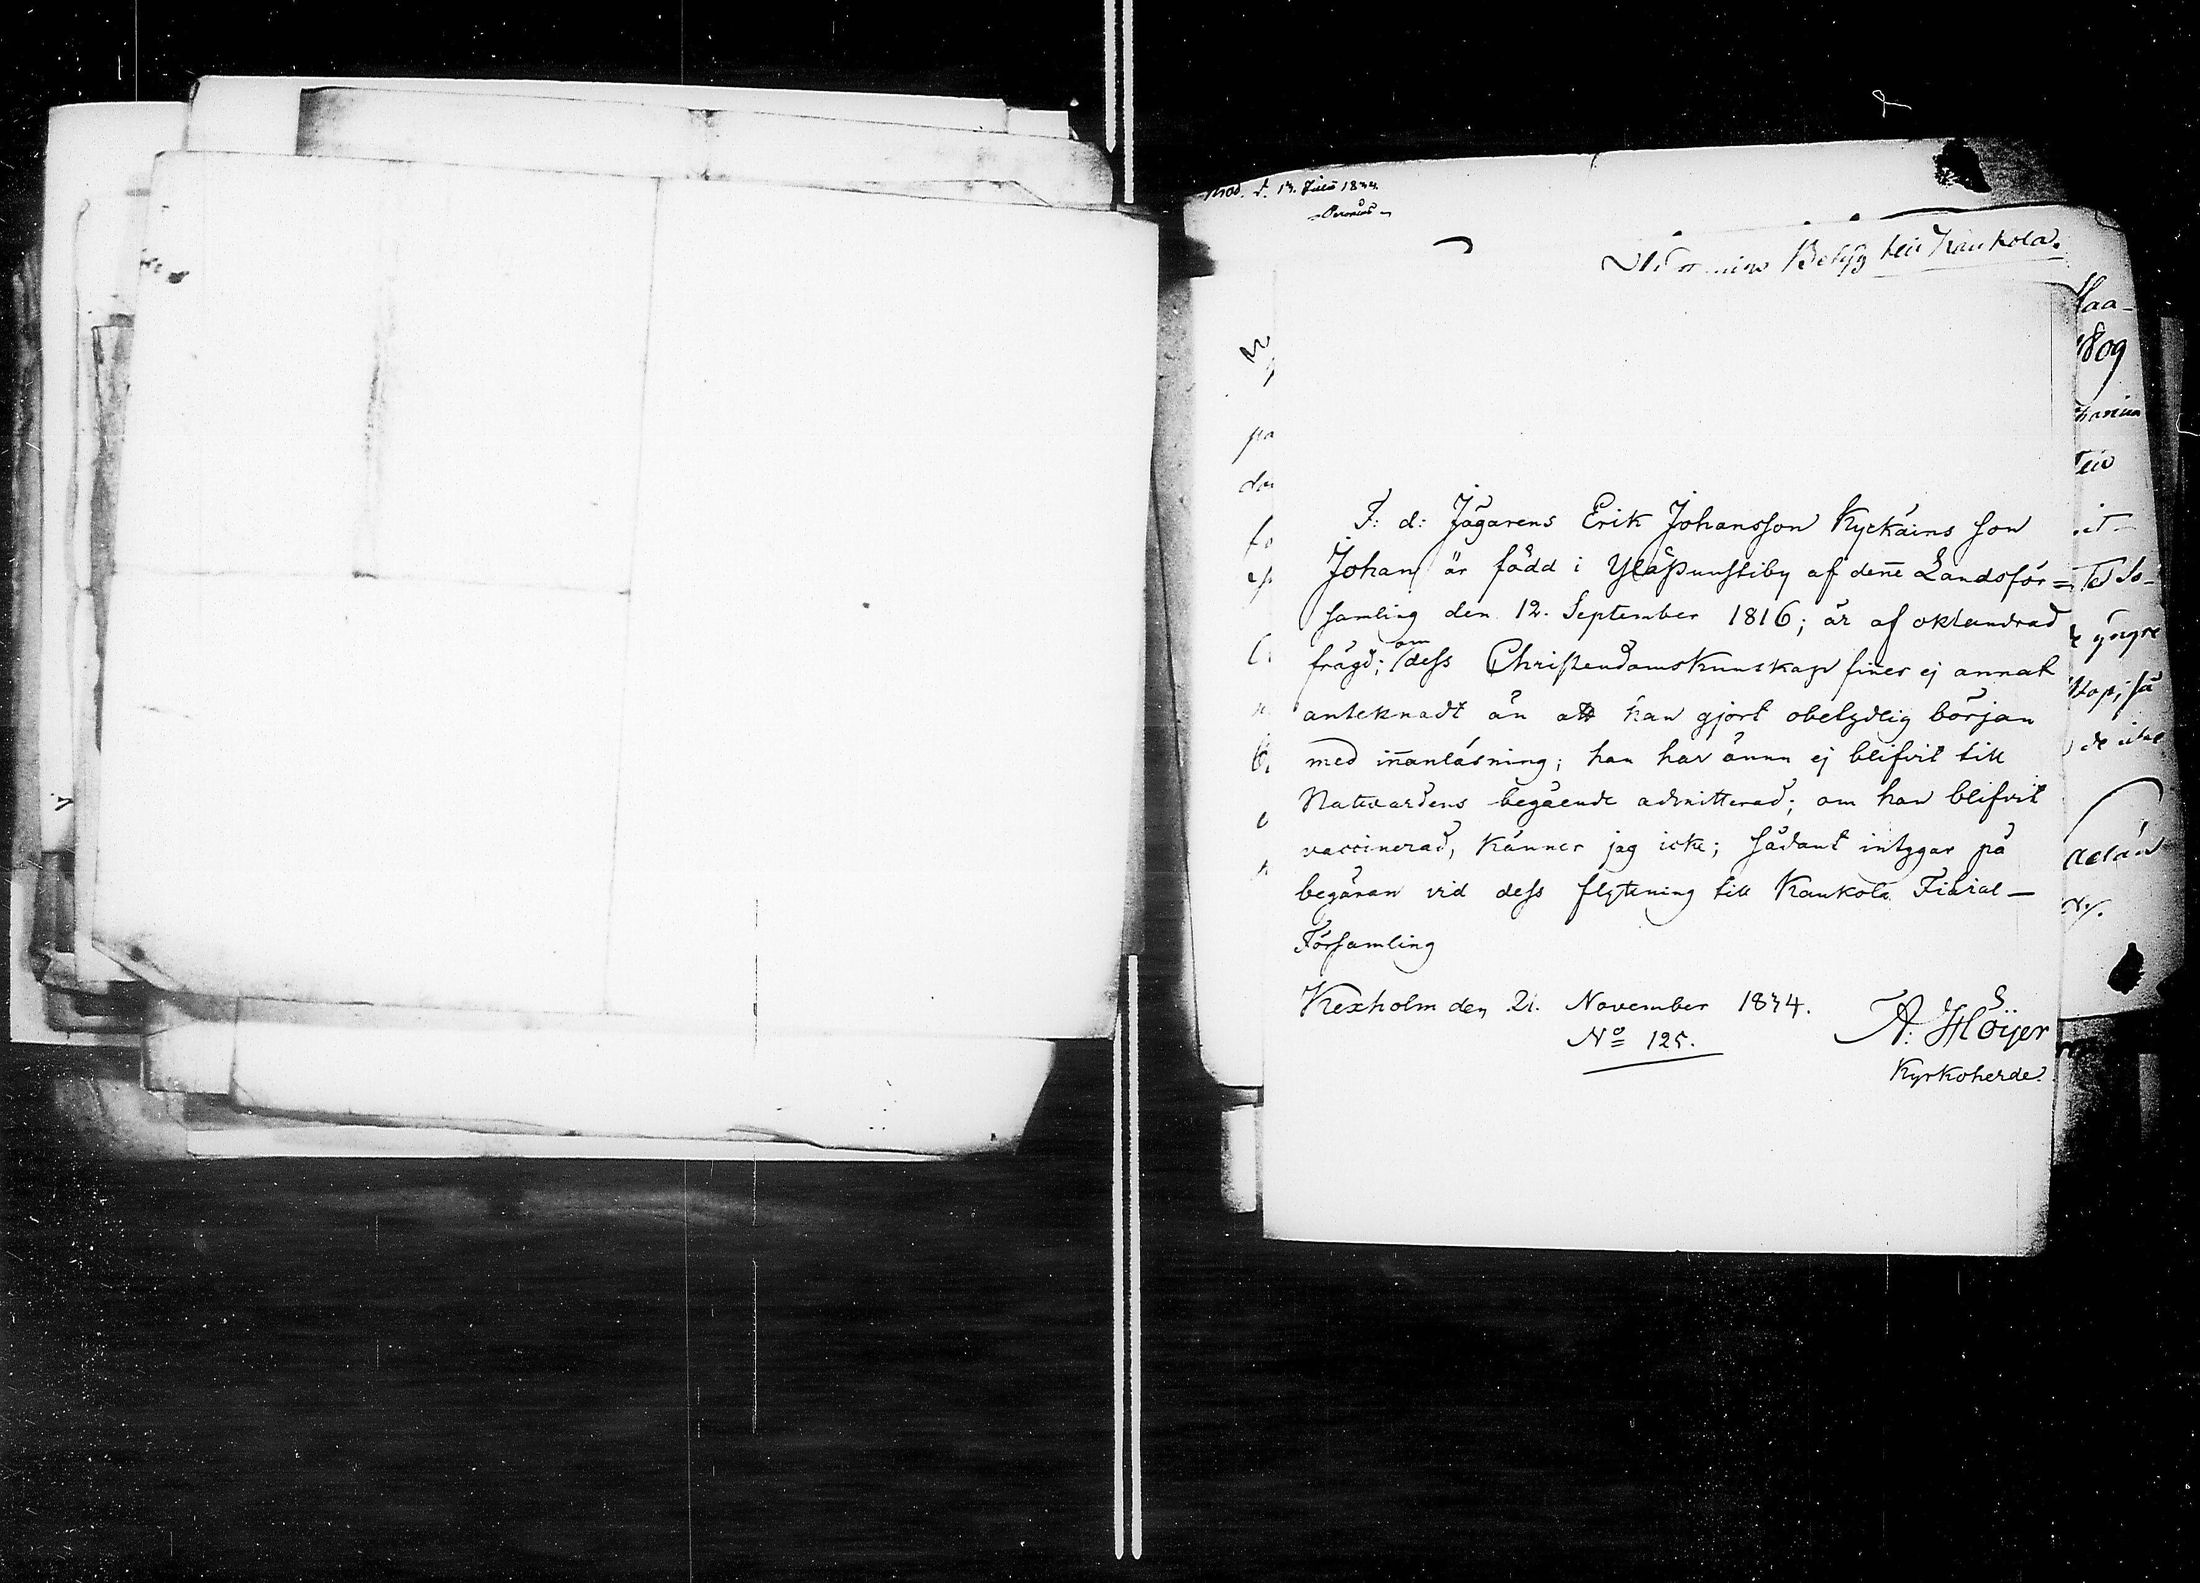 d. 14. Julii 1834.
Betyg till Kaukola.
F: d: Jägarens Erik Johansson Kyckäins son
Johan är född i Yläpunstiby af denne Landsför=
samling den 12. September 1816; är af oklandrad
frägd; om dess Christendomskunskap finner ej annat
anteknadt än att han gjort obetydlig början
med innanläsning; han har ännu ej blifvit till
Nattvardens begående admitterad; om han blifvit
vaccinerad, känner jag icke; sådant intygar på
begäran vid dess flyttning till Kaukola Filial-
Församling
Kexholm den 21. November 1834.
No 125.
A: Höijer
Kyrkoherde.
1809
yngre